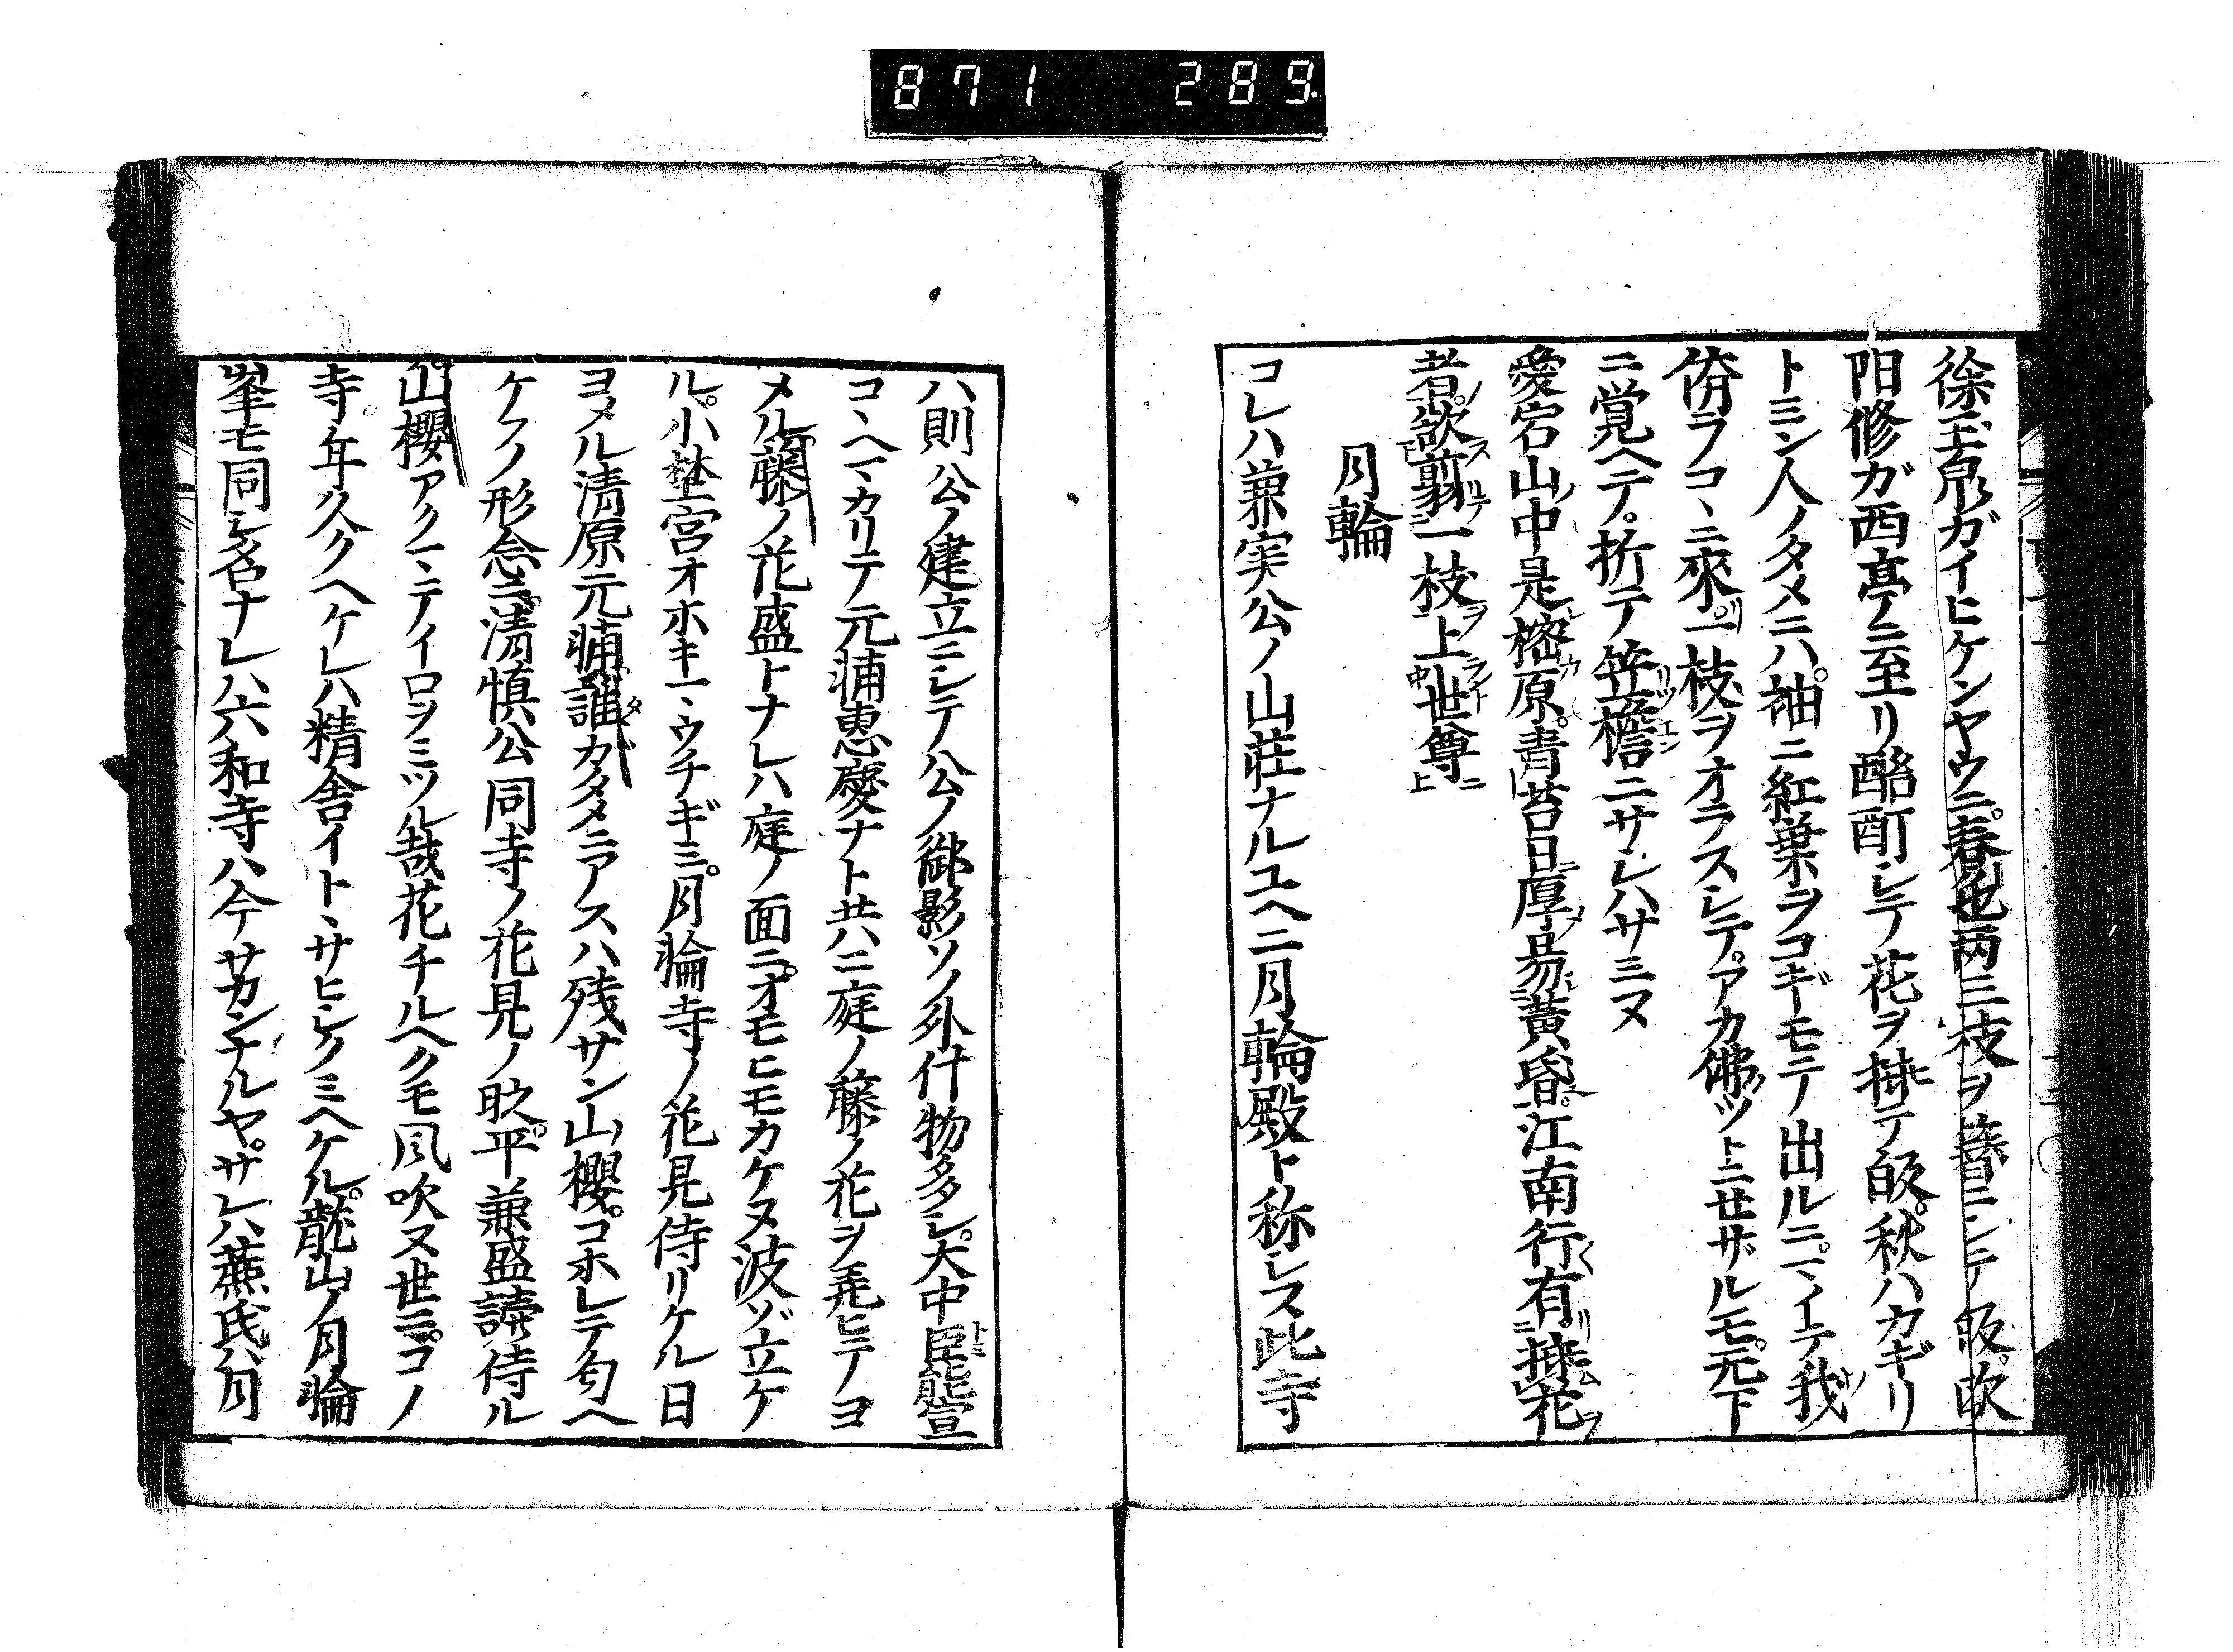 871 289
徐玉泉ガイヒケンヤウニ。春色両三枝ヲ簪ニシテ皈。欧
陽修ガ西亭ニ至リ酩酊シテ花ヲ挿テ皈。秋ハカギリ
トミン人ノタメニハ。袖ニ紅葉ヲコギモテ出ルニ。マイテ我
侪ラコヽニ來リ一枝ヲオラスシテ。アカ佛ノツトニセザルモ。元下
ニ覚ヘテ。折テ笠檐ニサシハサミヌ
愛宕山中是樒原。青苔日厚易黄昏。江南行有挿花
者。欲剪一枝上世尊
月輪
コレハ兼実公ノ山荘ナルユヘニ月輪殿ト称シス此寺
ハ則公ノ建立ニシテ公ノ御影ソノ外什物多シ。大中臣能宣
コヽヘマカリテ元輔恵慶ナト共ハニ庭ノ藤ノ花ヲ翫ヒテヨ
メル。藤ノ花盛トナレハ庭ノ面ニ。オモヒモカケヌ波ゾ立ケ
ル。小埜宮オホキマヽウチギミ。月輪寺ノ花見侍リケル日
ヨメル清原元輔。誰ガタメニアスハ残サン山櫻。コホレテ匂ヘ
ケフノ形念ニ。清慎公同寺ノ花見ノ時。平兼盛讀侍ル
山櫻アクマテイロヲミツル哉花チルヘクモ風吹ヌ世ニ。コノ
寺年久クヘケレハ精舎イトヽサヒシクミヘケル。龍山ノ月輪
峯モ同シ名ナレハ六和寺ハ今サカンナルヤ。サレハ蕪氏八月